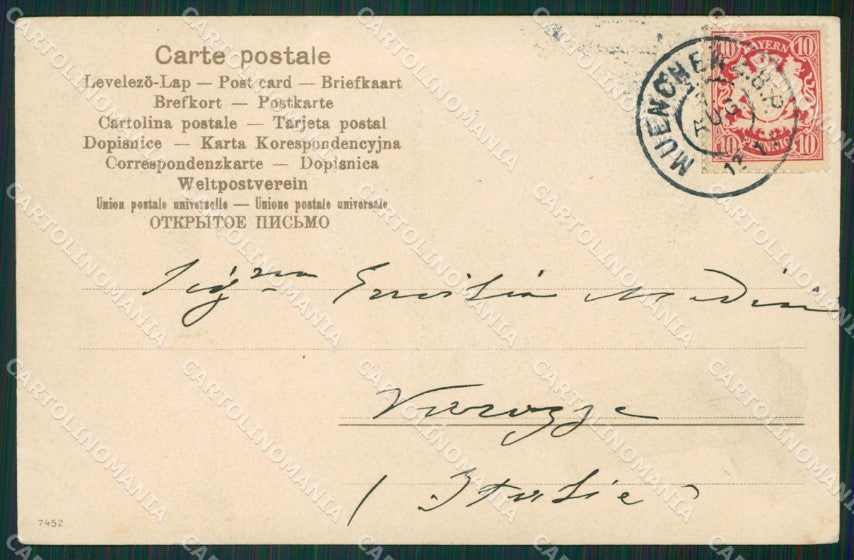 Carte postale
Levelezö-Lap — Post card — Briefkaart
Brefkort — Postkarte
Cartolina postale — Tarjeta postal
Dopisnice — Karta Korespondencyjna
Correspondenzkarte — Dopisnica
Weltpostverein
Union postale universelle — Unione postale universale
ОТКРЫТОЕ ПИСЬМО
MUENCHEN
AUG
12-1
BAYERN
10 10
10 PFENNIG 10
Sigra Emilia
Varazze
(Italie)
7452
CARTOLINOMANIA